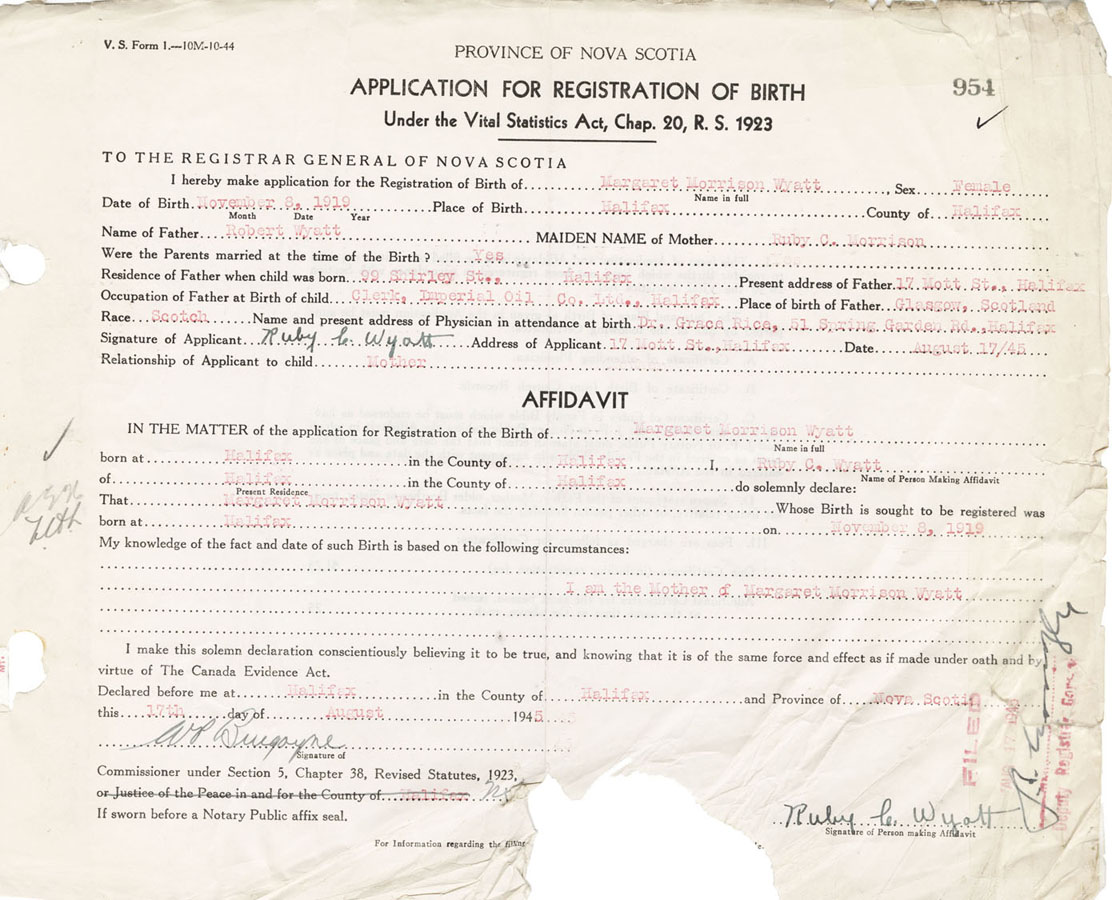 V. S. Form 1.—10M-10-44
PROVINCE OF NOVA SCOTIA
APPLICATION FOR REGISTRATION OF BIRTH
954
Under the Vital Statistics Act, Chap. 20, R. S. 1923
TO THE REGISTRAR GENERAL OF NOVA SCOTIA
I hereby make application for the Registration of Birth of Margaret Morrison Wyatt, Sex Female
Name in full
Date of Birth November 8, 1919 Place of Birth Halifax County of Halifax
Month Date Year
Name of Father Robert Wyatt MAIDEN NAME of Mother Ruby C. Morrison
Were the Parents married at the time of the Birth? Yes
Residence of Father when child was born 99 Shirley St., Halifax Present address of Father 17 Mott St., Halifax
Occupation of Father at Birth of child Clerk, Imperial Oil Co. Ltd., Halifax Place of birth of Father Glasgow, Scotland
Race Scotch Name and present address of Physician in attendance at birth Dr. Grace Rice, 51 Spring Garden Rd., Halifax
Signature of Applicant Ruby C. Wyatt Address of Applicant 17 Mott St., Halifax Date August 17/45
Relationship of Applicant to child Mother
AFFIDAVIT
IN THE MATTER of the application for Registration of the Birth of Margaret Morrison Wyatt
Name in full
born at Halifax in the County of Halifax I, Ruby C. Wyatt
Name of Person Making Affidavit
of Halifax in the County of Halifax do solemnly declare:
Present Residence
That Margaret Morrison Wyatt Whose Birth is sought to be registered was
born at Halifax on November 8, 1919
My knowledge of the fact and date of such Birth is based on the following circumstances:
I am the Mother of Margaret Morrison Wyatt
I make this solemn declaration conscientiously believing it to be true, and knowing that it is of the same force and effect as if made under oath and by
virtue of The Canada Evidence Act.
Declared before me at Halifax in the County of Halifax and Province of Nova Scotia
this 17th day of August 1945
Signature of
Commissioner under Section 5, Chapter 38, Revised Statutes, 1923,
or Justice of the Peace in and for the County of Halifax
If sworn before a Notary Public affix seal.
Ruby C. Wyatt
Signature of Person making Affidavit
For Information regarding the
FILED
Deputy Registrar